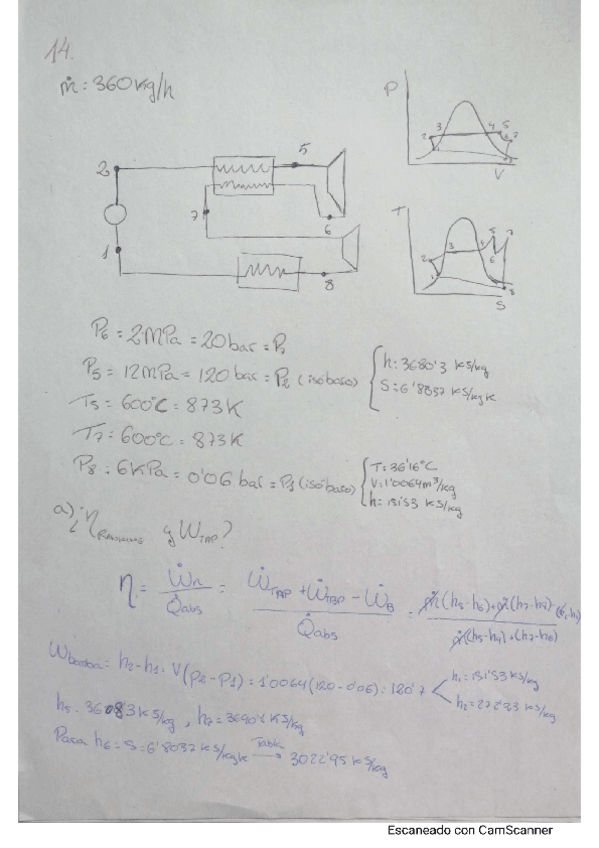 14.
ṁ: 360 kg/h
P
2 3 4 5 7
V
2 5 7 6 1 8
T
2 3 5 7 6 1 8
S
P6 = 2 MPa = 20 bar = P7
P5 = 12 MPa = 120 bar = P2 (isobaro) { h: 3680'3 kS/kg
S: 6'8037 kS/kgK
T5 = 600°C = 873 K
T7 = 600°C = 873 K
P8 = 6 KPa = 0'06 bar = P1 (isobaro) { T: 36'16°C
V: 1'0064 m³/kg
h: 151'53 kS/kg
a) ¿η Rankine y WTAP?
η = Ẇn / Q̇abs = ẆTAP + ẆTBP - ẆB / Q̇abs = ṁ(h5-h6)+ṁ(h7-h8)- / ṁ(h5-h1)+(h7-h6)
Wbomba = h2-h1 = V(P2-P1) = 1'0064 (120-0'06) = 120'7 < h1 = 151'53 kS/kg
h2 = 272'23 kS/kg
h5 = 3608'3 kS/kg, h7 = 3690'1 kS/kg
Para h6 = S = 6'8037 kS/kgK Tabla → 3022'95 kS/kg
Escaneado con CamScanner